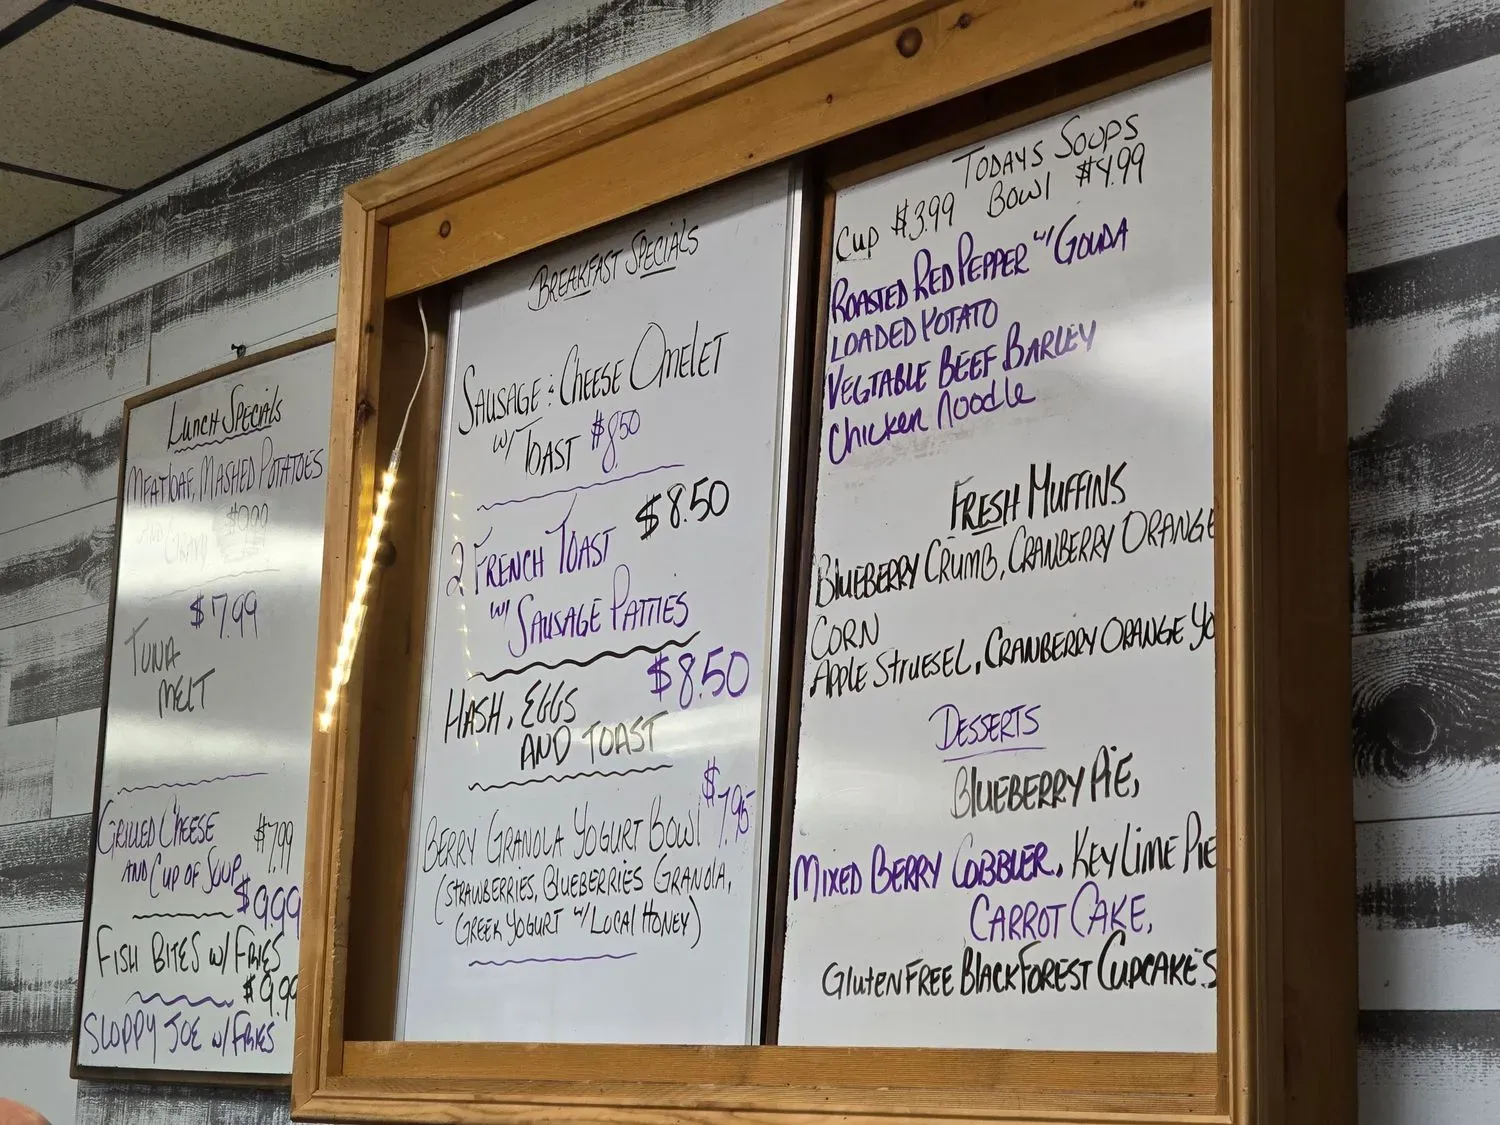 Lunch Specials
MEATLOAF, MASHED POTATOES
AND GRAVY $9.99
$7.99
TUNA
MELT
GRILLED CHEESE $7.99
AND CUP OF SOUP
$9.99
FISH BITES W/ FRIES
$9.99
SLOPPY JOE W/ FRIES
BREAKFAST SPECIALS
SAUSAGE & CHEESE OMELET
W/ TOAST $8.50
2 FRENCH TOAST $8.50
W/ SAUSAGE PATTIES
$8.50
HASH, EGGS
AND TOAST
BERRY GRANOLA YOGURT BOWL $7.95
(STRAWBERRIES, BLUEBERRIES GRANOLA,
GREEK YOGURT W/ LOCAL HONEY)
TODAYS SOUPS
CUP $3.99 BOWL $4.99
ROASTED RED PEPPER W/ GOUDA
LOADED POTATO
VEGTABLE BEEF BARLEY
Chicken Noodle
FRESH MUFFINS
BLUEBERRY CRUMB, CRANBERRY ORANGE
CORN
APPLE STRUESEL, CRANBERRY ORANGE YO
DESSERTS
BLUEBERRY PIE,
MIXED BERRY COBBLER, KEY LIME PIE
CARROT CAKE,
GLUTEN FREE BLACK FOREST CUPCAKES